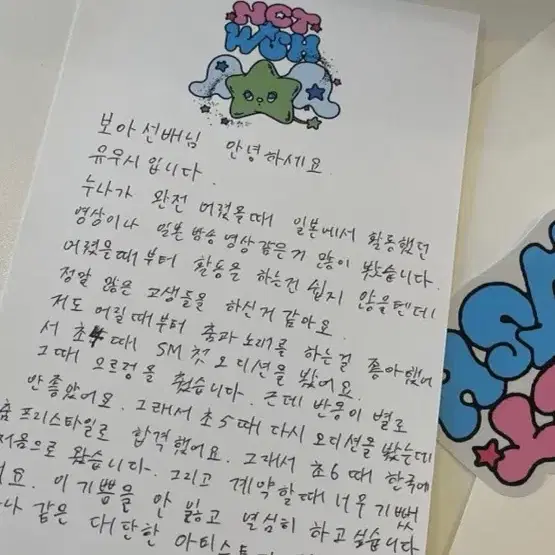 NCT
WISH
보아선배님 안녕하세요.
유우시입니다.
누나가 완전 어렸을때 일본에서 활동했던
영상이나 일본 방송 영상같은거 많이 봤습니다.
어렸을때부터 활동을 하는건 쉽지 않을텐데
정말 많은 고생들을 하신거 같아요.
저도 어릴때부터 춤과 노래를 하는걸 좋아했어
서 초4때 SM 첫 오디션을 봤어요.
그때 으르렁을 췄습니다. 근데 반응이 별로
안좋았어요. 그래서 초5때 다시 오디션을 봤는데
춤 프리스타일로 합격했어요. 그래서 초6때 한국에
처음으로 왔습니다. 그리고 계약할때 너무 기뻤
어요. 이 기쁨을 안 잃고 열심히 하고싶습니다
나 같은 대단한 아티스트